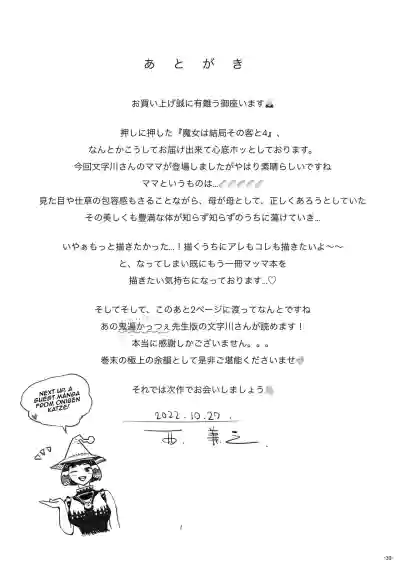 あとがき
お買い上げ誠に有難う御座います
押しに押した『魔女は結局その客と4』、
なんとかこうしてお届け出来て心底ホッとしております。
今回文字川さんのママが登場しましたがやはり素晴らしいですね
ママというものは…
見た目や仕草の包容感もさることながら、母が母として、正しくあろうとしていた
その美しくも豊満な体が知らず知らずのうちに蕩けていき…
いやぁもっと描きたかった…！描くうちにアレもコレも描きたいよ〜〜
と、なってしまい既にもう一冊マッマ本を
描きたい気持ちになっております…♡
そしてそして、このあと2ページに渡ってなんとですね
あの鬼遍かっつぇ先生版の文字川さんが読めます！
本当に感謝しかございません。。。
巻末の極上の余韻として是非ご堪能くださいませ
それでは次作でお会いしましょう
2022.10.27.
NEXT UP, A
GUEST MANGA
FROM ONIBEN
KATZE!
-39-